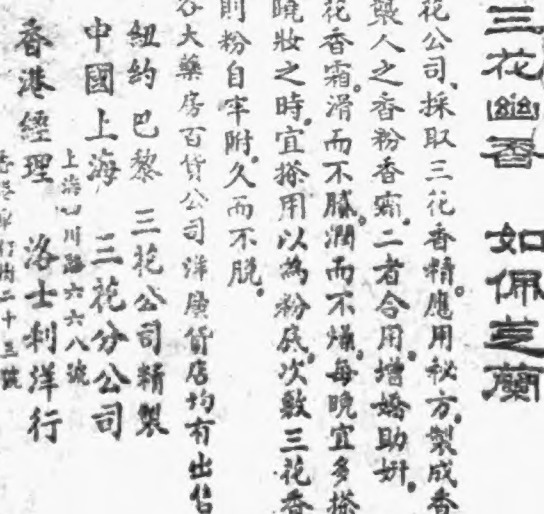 三花幽香　如佩芝蘭
花公司、採取三花香精。應用秘方。製成香
襲人之香粉香霜。二者合用。增嬌助妍。
花香霜。滑而不膩。潤而不燥。每晚宜多搽
曉妝之時。宜搽用以為粉底。次敷三花香
則粉自牢附。久而不脫。
各大藥房百貨公司洋廣貨店均有出售
紐約巴黎　三花公司精製
中國上海　三花分公司
上海四川路六六八號
香港經理　洛士利洋行
香港 行街二十三號